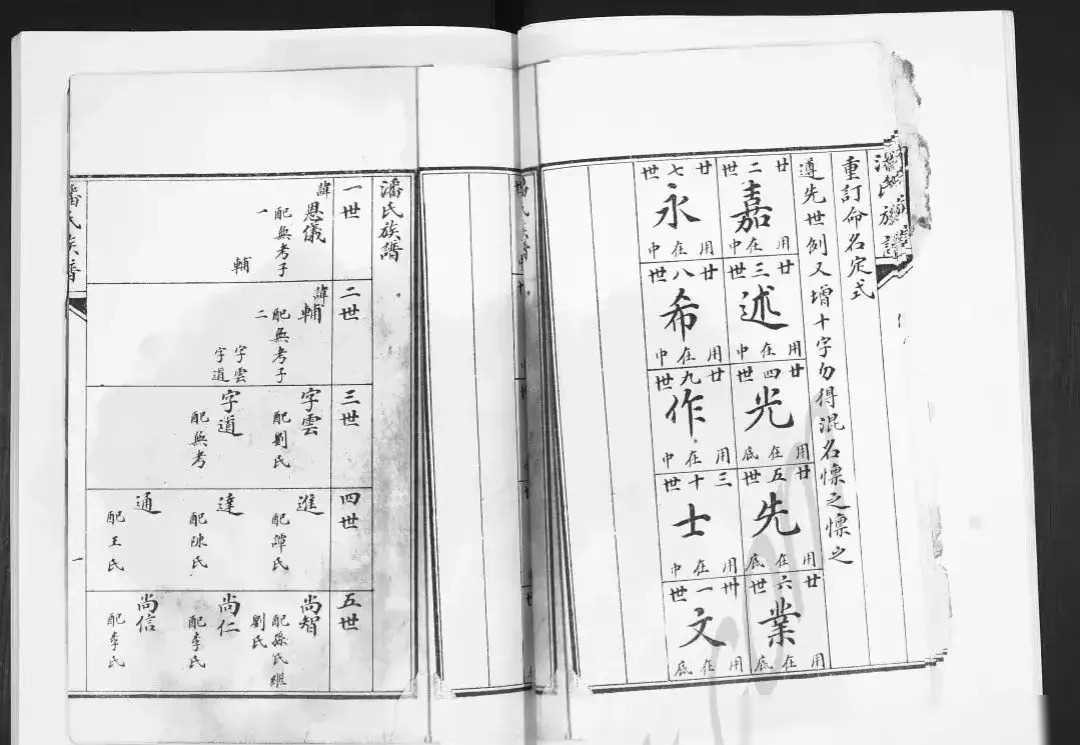 潘氏族譜
重訂命名定式
遵先世例又增十字勿得混名懔之懔之
廿二世
嘉
用在中
廿三世
述
用在中
廿四世
光
用在底
廿五世
先
用在底
廿六世
業
用在底
廿七世
永
用在中
廿八世
希
用在中
廿九世
作
用在中
三十世
士
用在中
卅一世
文
用在底
潘氏族譜
一世
諱恩儀
配無考子一
輔
二世
諱輔
配無考子二
字雲
字道
三世
字雲
配劉氏
字道
配無考
四世
進
配譚氏
達
配陳氏
通
配王氏
五世
尚智
配孫氏繼
劉氏
尚仁
配李氏
尚信
配李氏
潘氏族譜
一